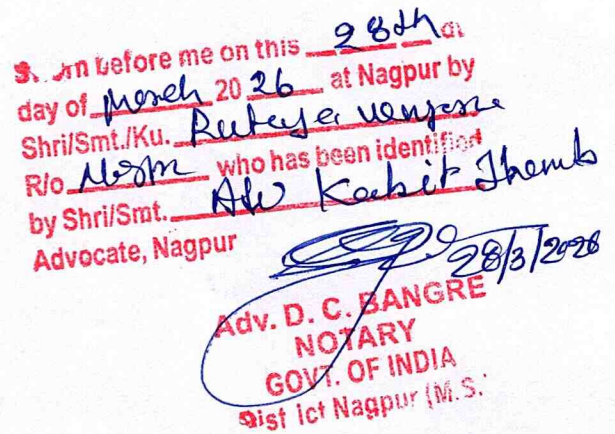 before me on this 28th
day of March 20 26 at Nagpur by
Shri/Smt./Ku.
R/o who has been identified
by Shri/Smt. Adv
Advocate, Nagpur
28/3/2026
Adv. D. C. BANGRE
NOTARY
GOVT. OF INDIA
Dist ict Nagpur (M.S.